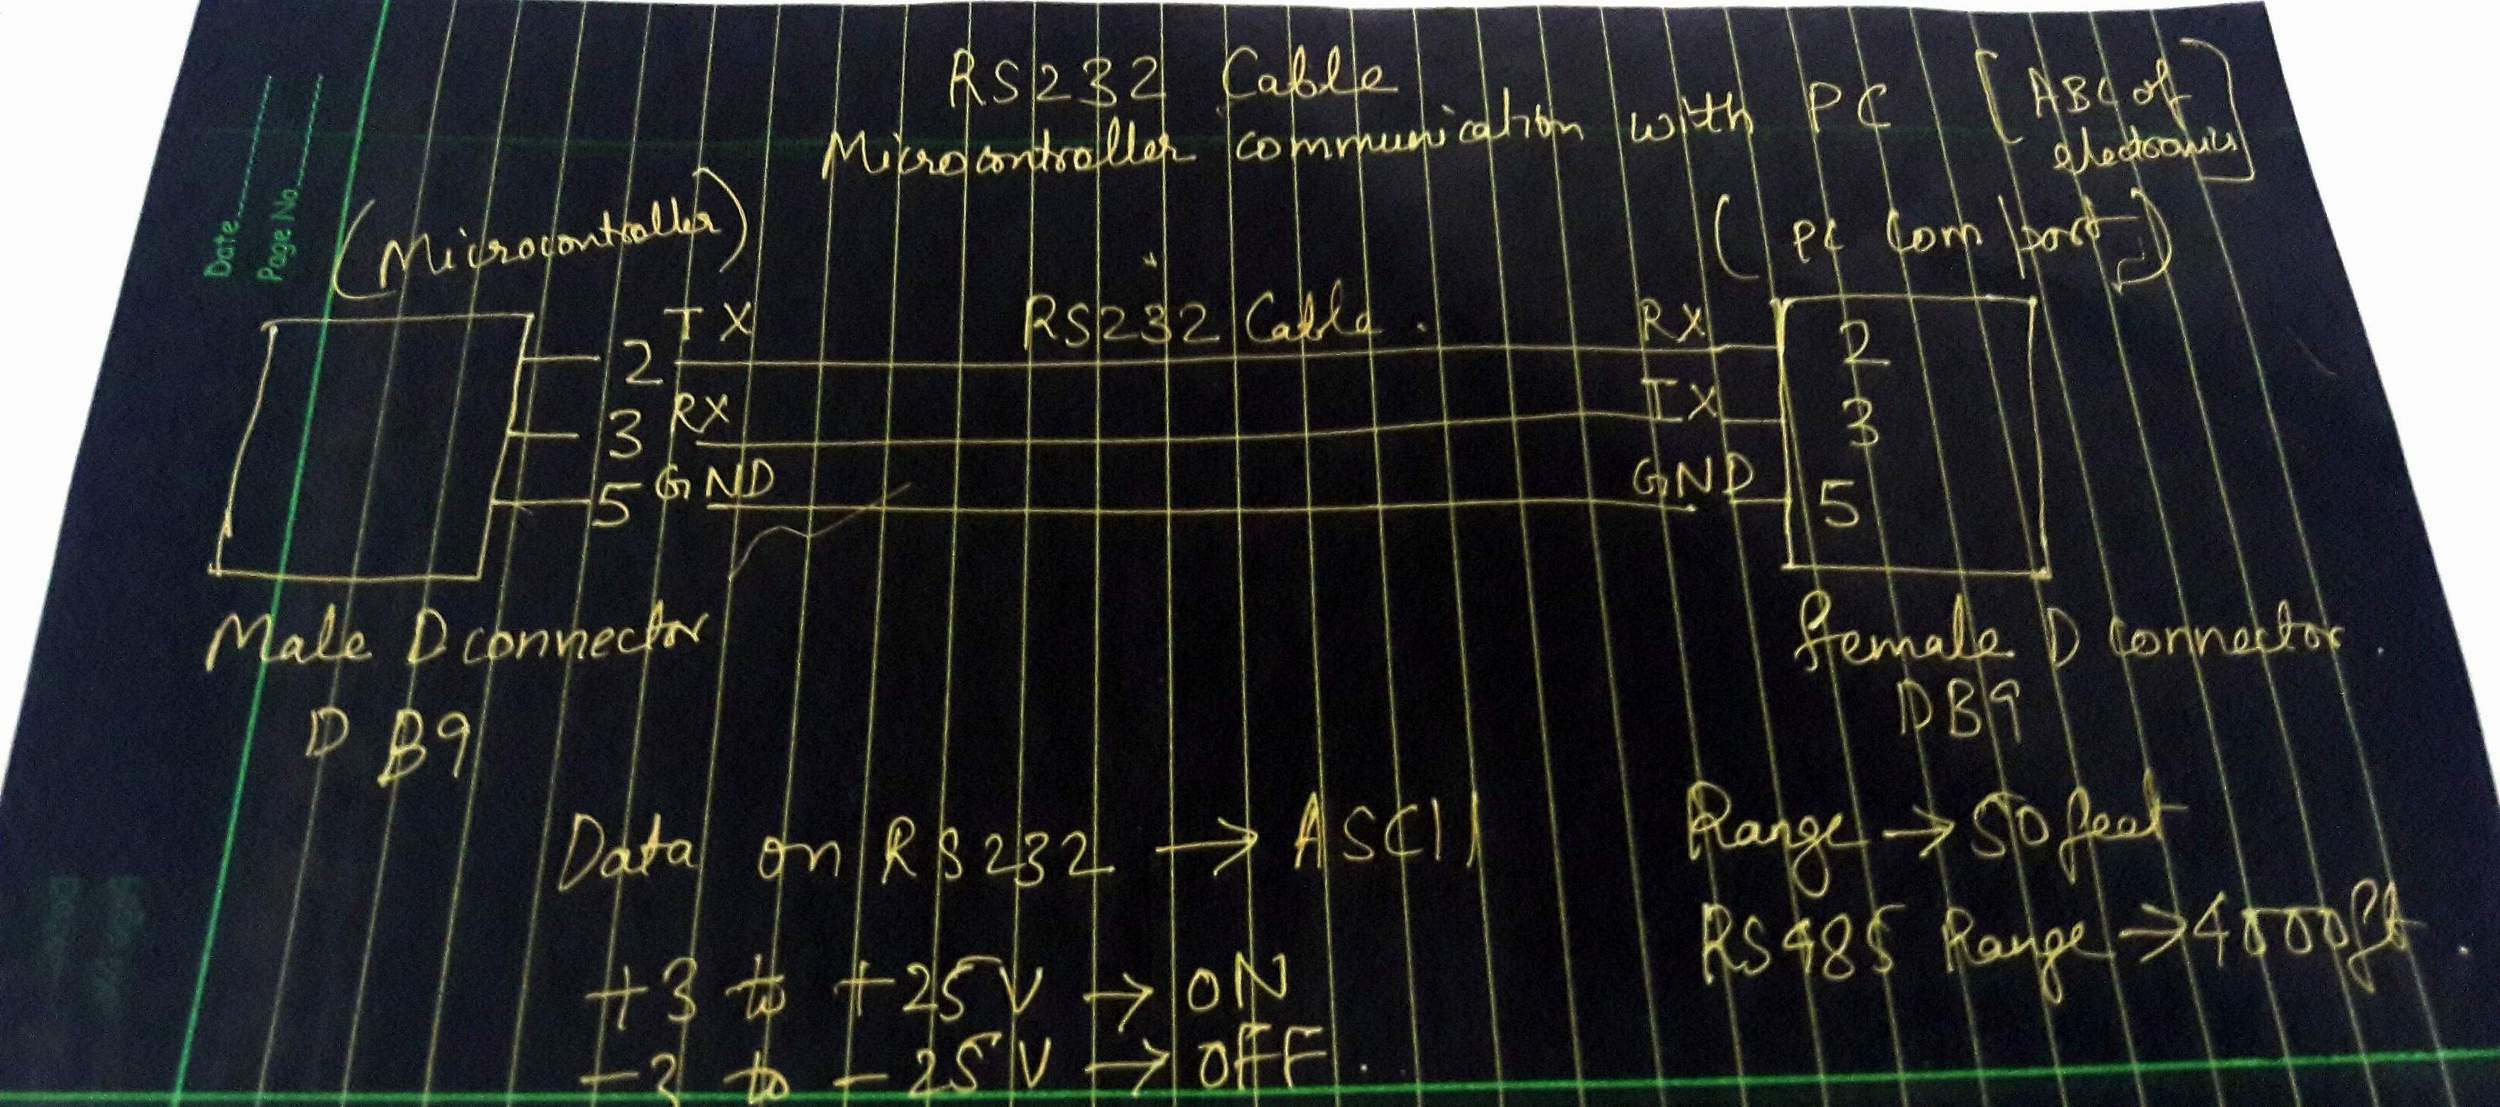 RS232 Cable
Microcontroller communication with PC [ABC of
electronics]
Date
Page No.
(Microcontroller)
(PC Com port)
TX RS232 Cable. RX
2 2
RX TX
3 3
GND GND
5 5
Male D connector
DB9
Female D connector.
DB9
Data on RS232 → ASCII
Range → 50 feet
RS485 Range → 4000ft.
+3 to +25V → ON
-3 to -25V → OFF.